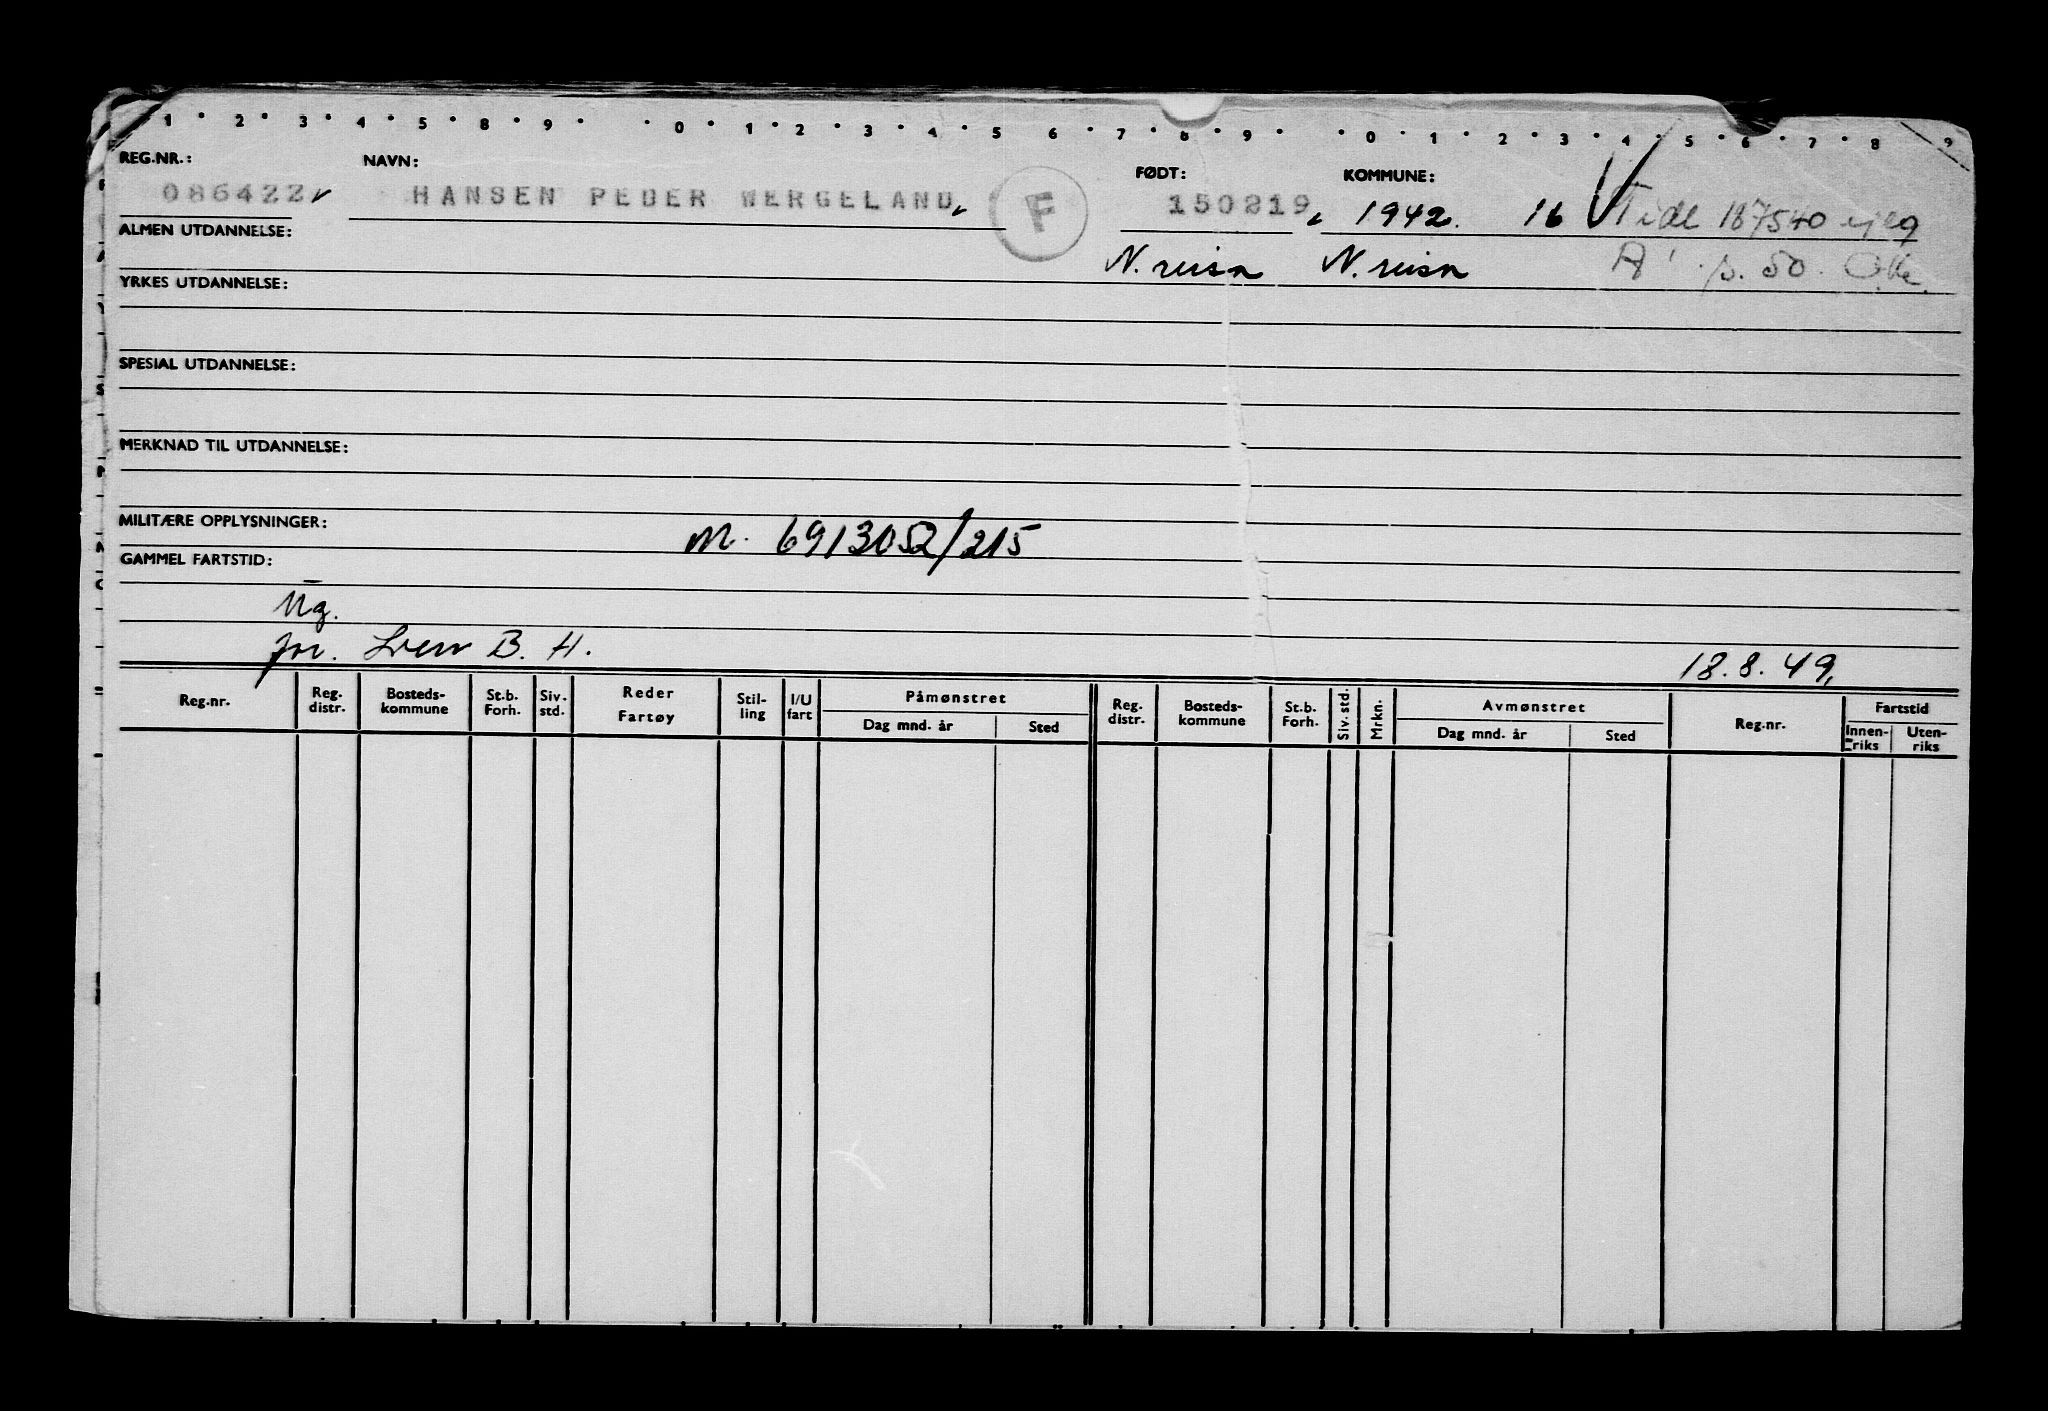 1 · 2 · 3 · 4 · 5 · 8 · 9 · · 0 · 1 · 2 · 3 · 4 · 5 6 · 7 · 8 · 9 · · 0 · 1 · 2 · 3 · 4 · 5 · 6 · 7 · 8 9
REG.NR.: NAVN: FØDT: KOMMUNE:
086422 HANSEN PEDER WERGELAND F 150219 1942. 16 Tidl 187540
ALMEN UTDANNELSE: N. reisa N. reisa A p. 50.
YRKES UTDANNELSE:
SPESIAL UTDANNELSE:
MERKNAD TIL UTDANNELSE:
MILITÆRE OPPLYSNINGER: M. 6913052/215
GAMMEL FARTSTID:
Ug.
for. B. H. 18.8.49.
Reg.nr. Reg. distr. Bosteds-kommune St.b. Forh. Siv. std. Reder Fartøy Stil-ling I/U fart Påmønstret Dag mnd. år Sted Reg. distr. Bosteds-kommune St.b. Forh. Siv. std. Mrkn. Avmønstret Dag mnd. år Sted Reg.nr. Fartstid Innen-riks Uten-riks